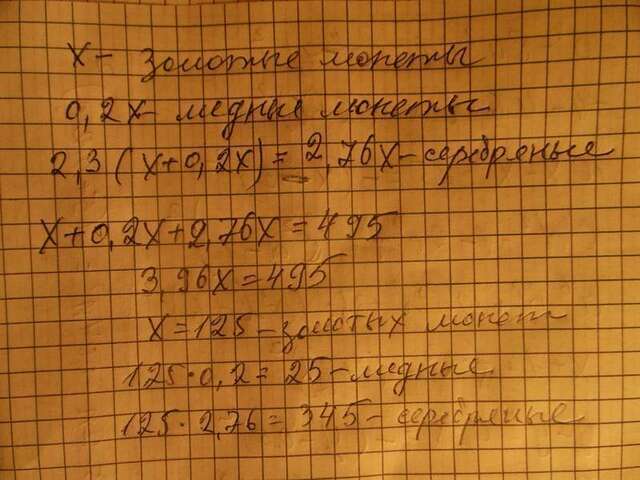 х - золотые монеты
0,2х - медные монеты
2,3(х+0,2х)=2,76х - серебряные
х+0,2х+2,76х=495
3,96х=495
х=125 - золотых монет
125·0,2=25 - медные
125·2,76=345 - серебряные